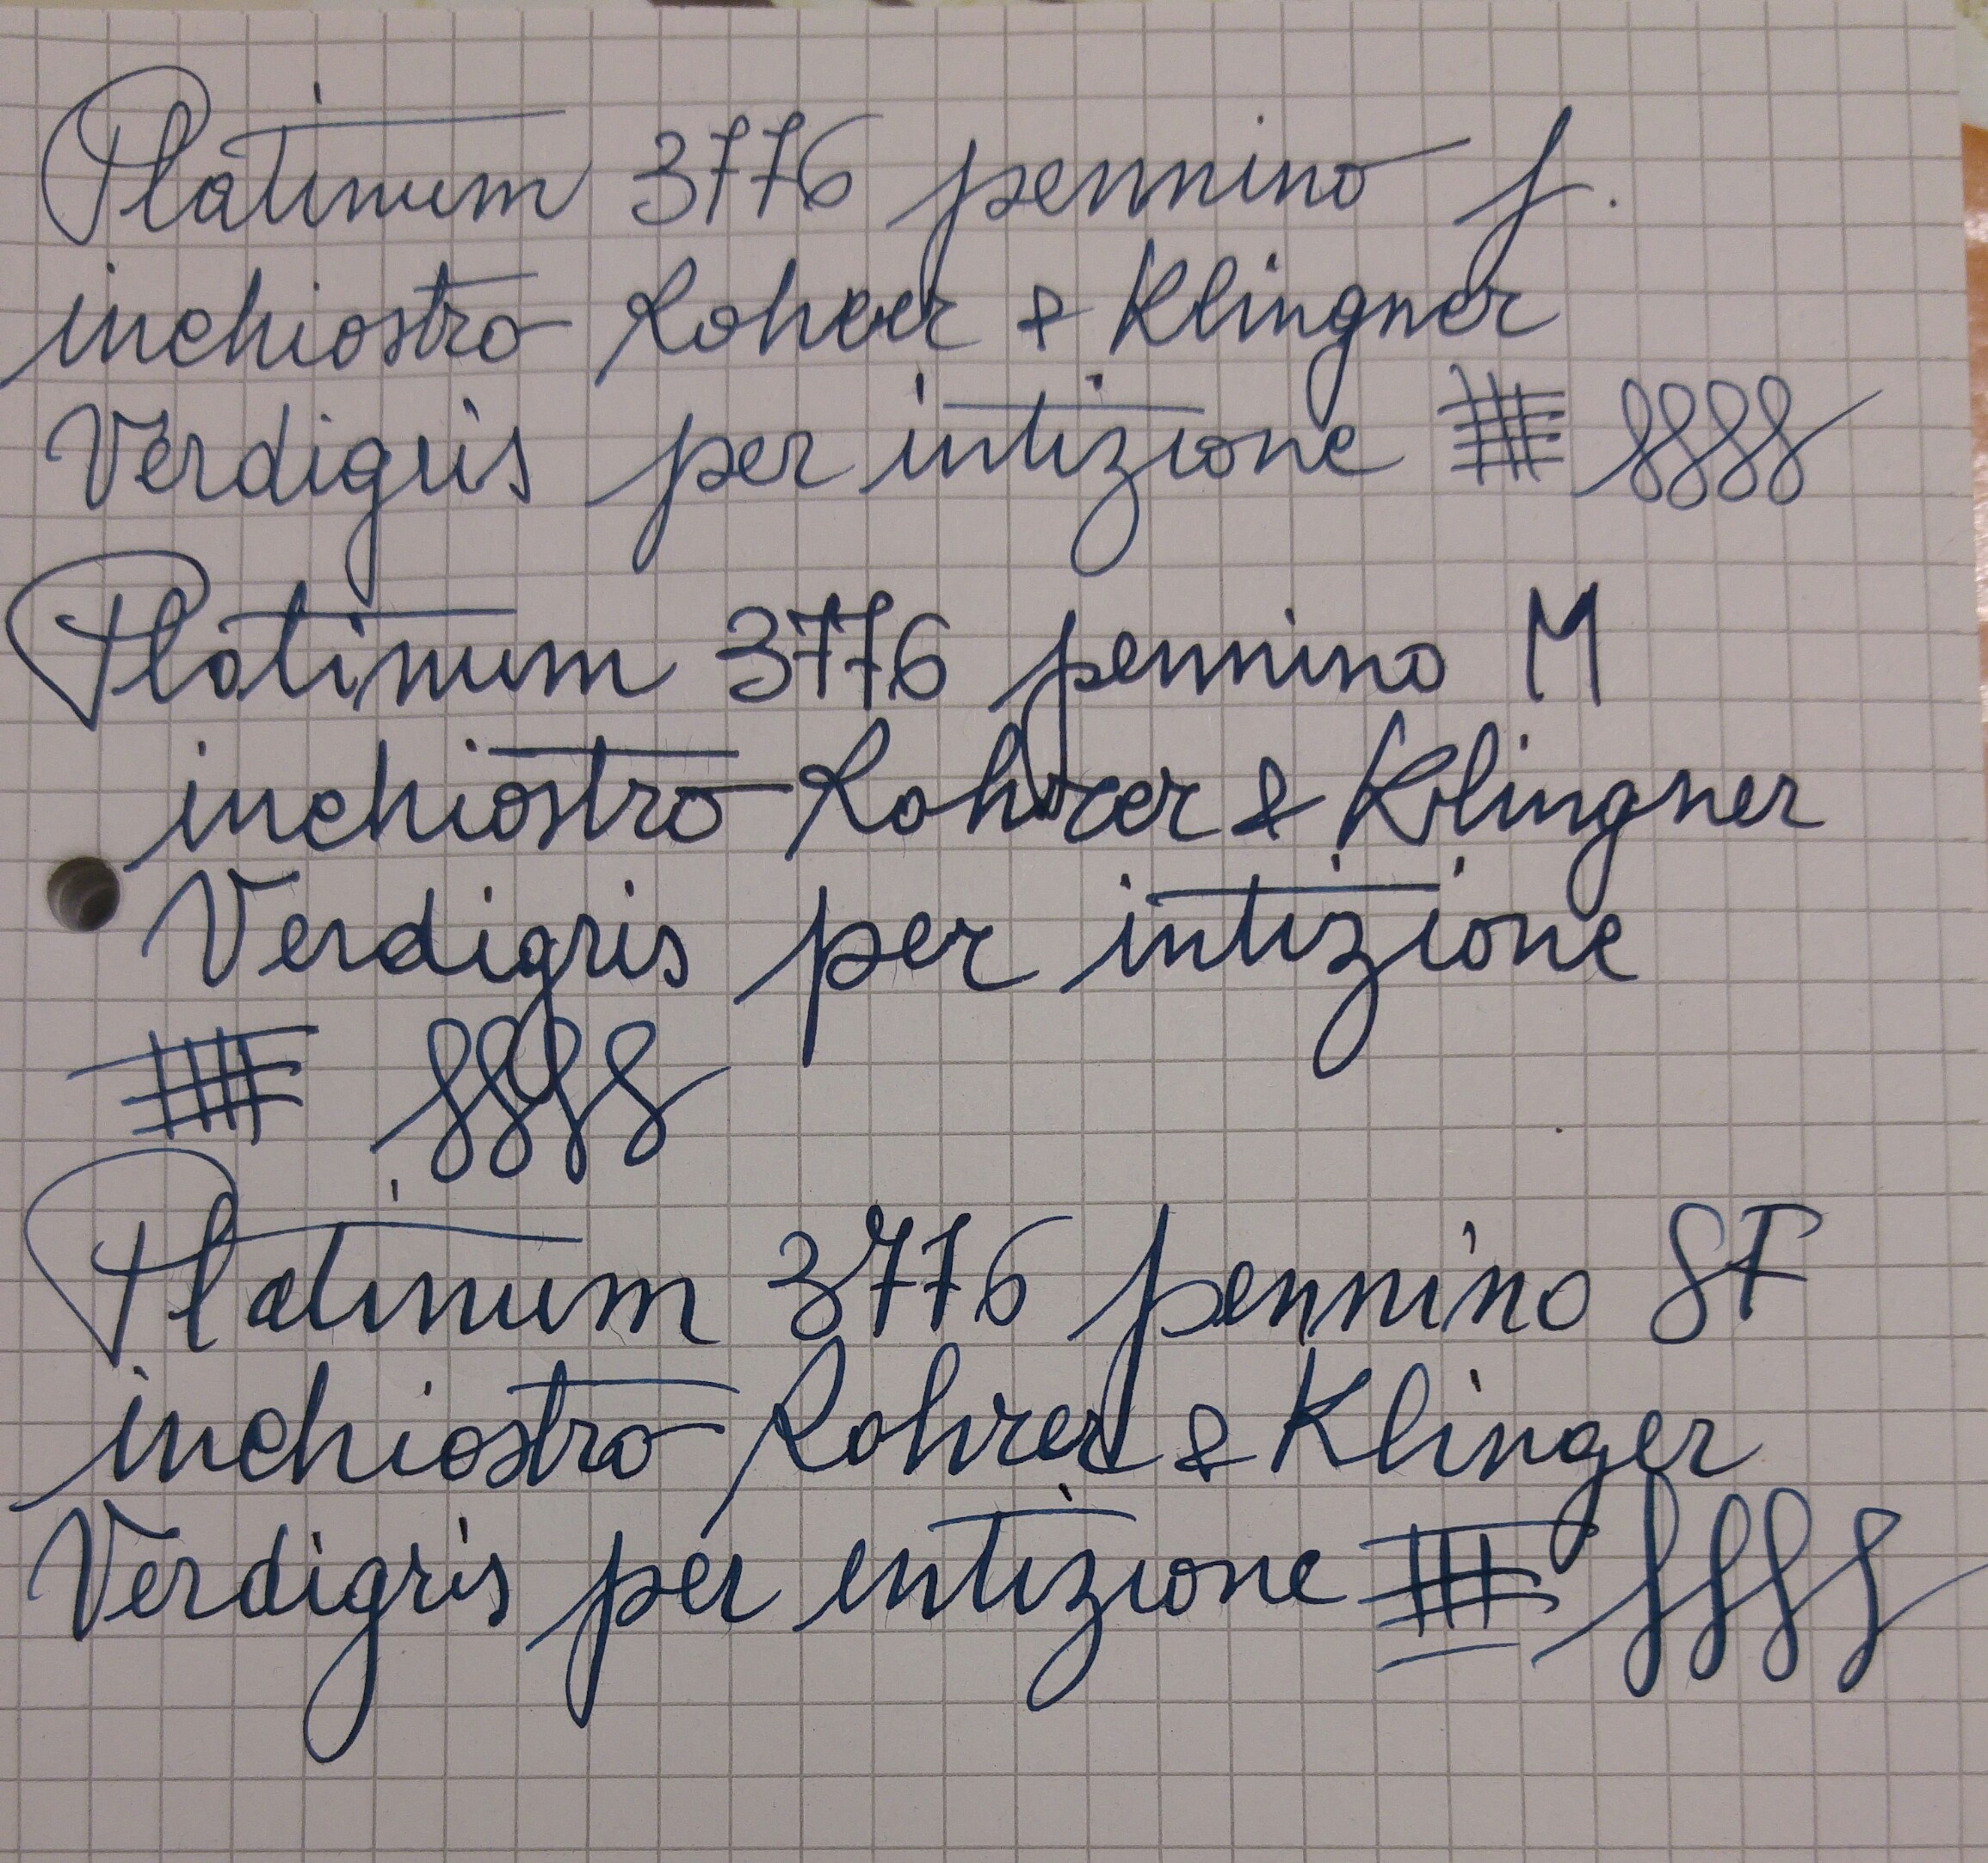 Platinum 3776 pennino f.
inchiostro Rohrer & Klingner
Verdigris per intizione
Platinum 3776 pennino M
inchiostro Rohrer & Klingner
Verdigris per intizione
Platinum 3776 pennino SF
inchiostro Rohrer & Klinger
Verdigris per intizione